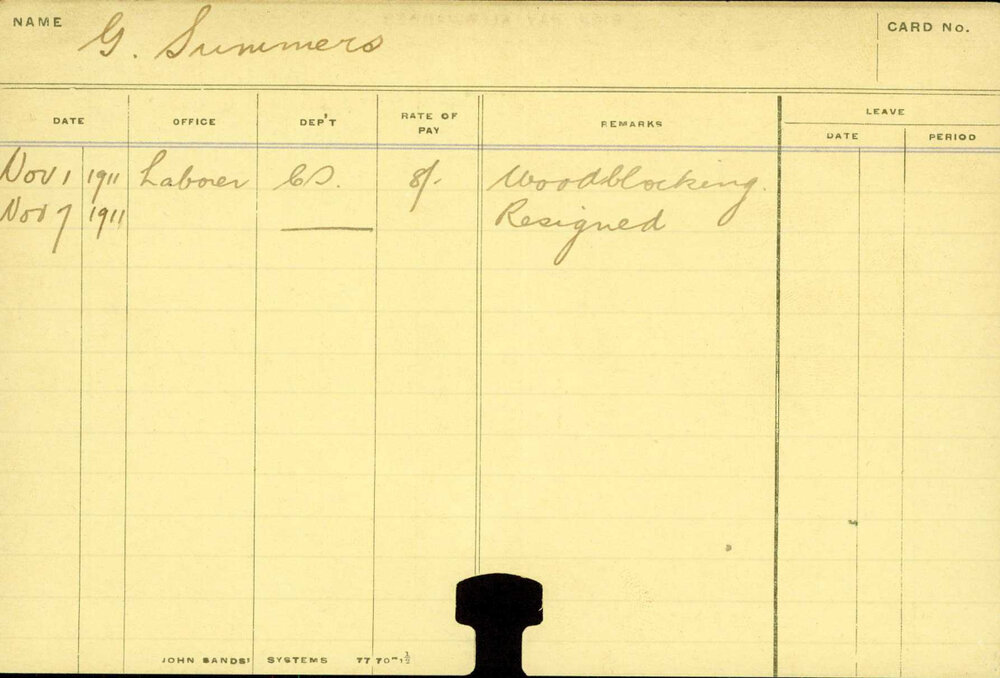 NAME G. Summers CARD No.
DATE OFFICE DEP'T RATE OF PAY REMARKS LEAVE
DATE PERIOD
Nov 1 1911 Laborer CS. 8/- Woodblocking.
Nov 7 1911 Resigned
JOHN SANDS' SYSTEMS 77 70